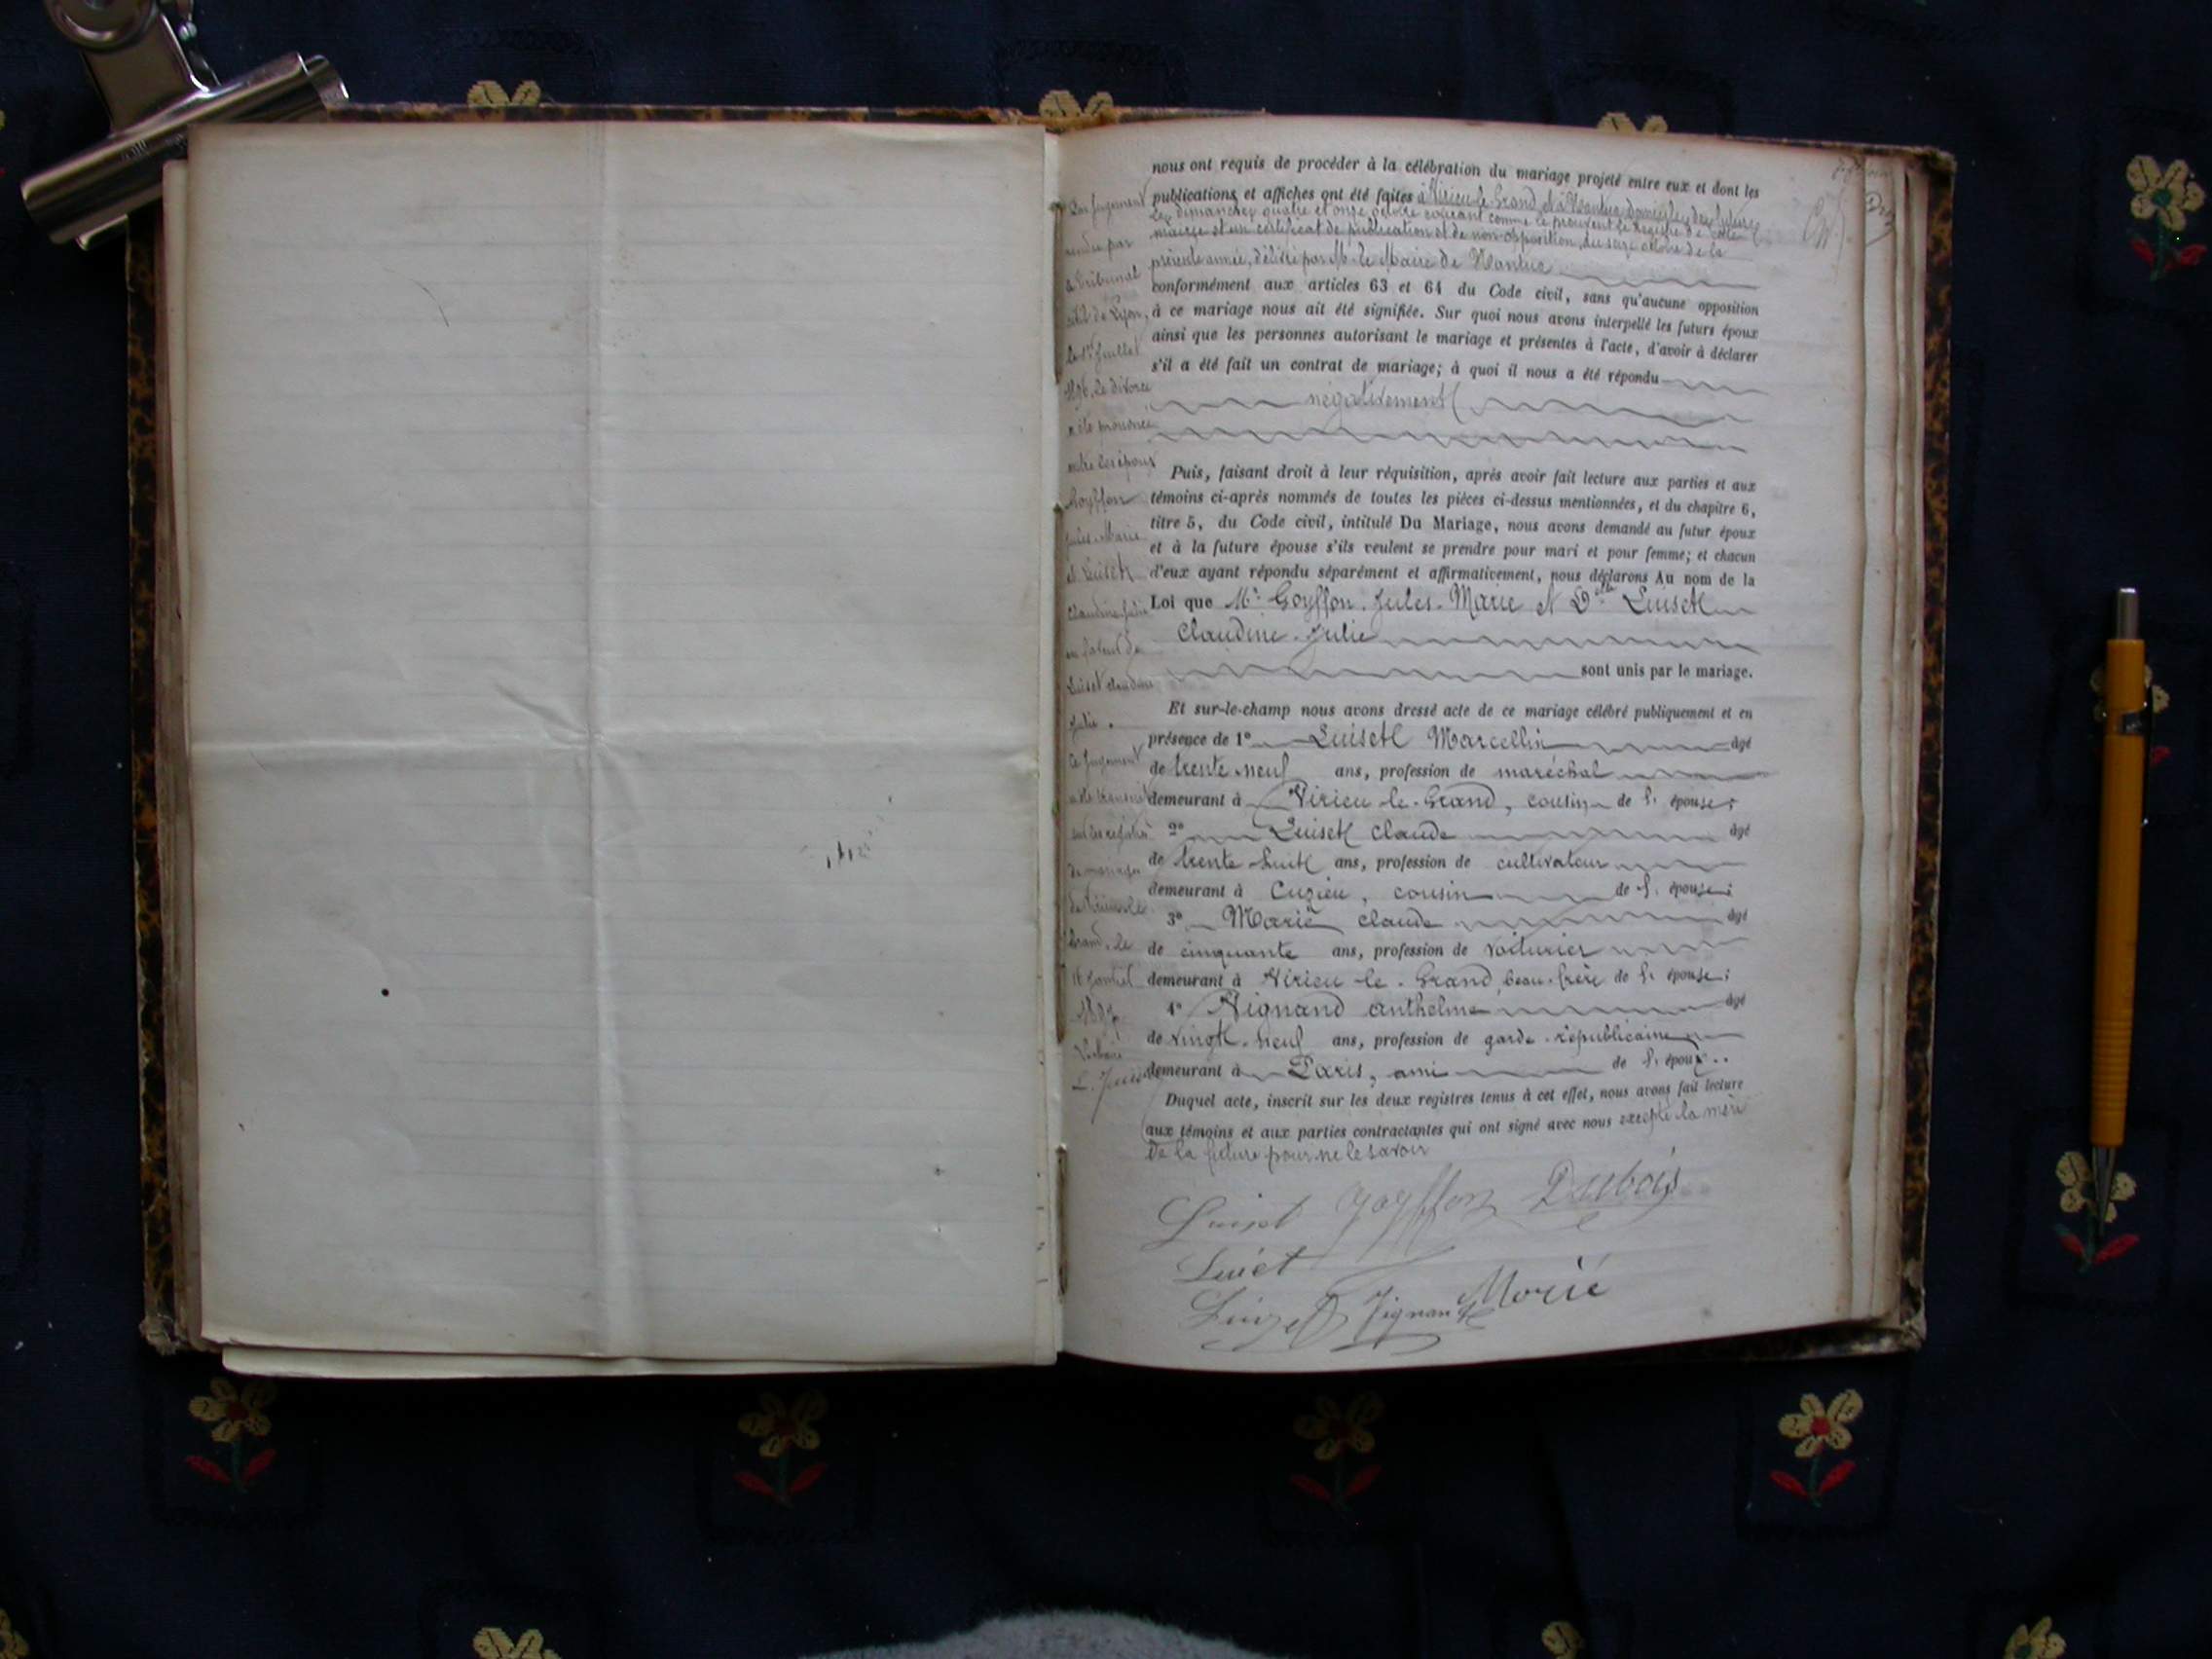 nous ont requis de procéder à la célébration du mariage projeté entre eux et dont les
publications et affiches ont été faites à Virieu-le-Grand et à Nantua, domiciles des futurs
les dimanches quatre et onze octobre courant comme le prouvent le registre de cette
mairie et un certificat de publication et de non-opposition, du seize octobre de la
présente année, délivré par M. le Maire de Nantua
conformément aux articles 63 et 64 du Code civil, sans qu'aucune opposition
à ce mariage nous ait été signifiée. Sur quoi nous avons interpellé les futurs époux
ainsi que les personnes autorisant le mariage et présentes à l'acte, d'avoir à déclarer
s'il a été fait un contrat de mariage; à quoi il nous a été répondu
négativement
Puis, faisant droit à leur réquisition, après avoir fait lecture aux parties et aux
témoins ci-après nommés de toutes les pièces ci-dessus mentionnées, et du chapitre 6,
titre 5, du Code civil, intitulé Du Mariage, nous avons demandé au futur époux
et à la future épouse s'ils veulent se prendre pour mari et pour femme; et chacun
d'eux ayant répondu séparément et affirmativement, nous déclarons Au nom de la
Loi que Mr Goyffon Jules-Marie et Delle Luiset
Claudine-Julie
sont unis par le mariage.
Et sur-le-champ nous avons dressé acte de ce mariage célébré publiquement et en
présence de 1° Luiset Marcellin âgé
de trente-neuf ans, profession de maréchal
demeurant à Virieu-le-Grand, cousin de l' épouse;
2° Luiset Claude âgé
de trente-huit ans, profession de cultivateur
demeurant à Cuzieu, cousin de l' épouse;
3° Marié Claude âgé
de cinquante ans, profession de voiturier
demeurant à Virieu-le-Grand, beau-frère de l' épouse;
4° Vignand Anthelme âgé
de vingt-neuf ans, profession de garde-républicain
demeurant à Paris, ami de l' époux.
Duquel acte, inscrit sur les deux registres tenus à cet effet, nous avons fait lecture
aux témoins et aux parties contractantes qui ont signé avec nous excepté la mère
de la future pour ne le savoir
Luiset Goyffon Dubois
Luiset
Luizet Vignand Morié
Par jugement
rendu par
le Tribunal
civil de Lyon,
le 1er Juillet
1896, le divorce
a été prononcé
entre les époux
Goyffon
Jules-Marie
et Luiset
Claudine-Julie
au profit de
Luiset Claudine
Julie.
Ce jugement
a été transcrit
sur les registres
de mariages
de Virieu-le-
Grand, le